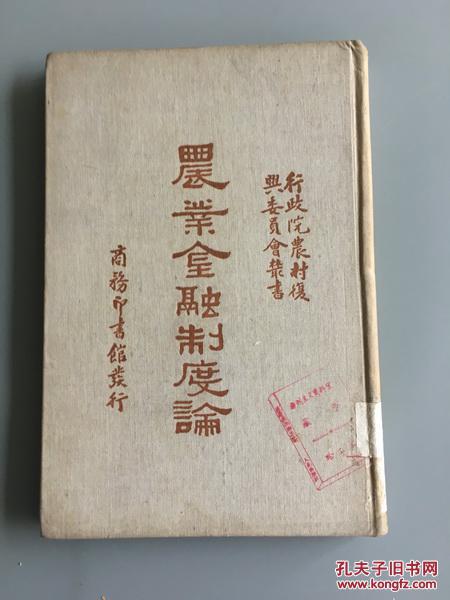 行政院農村復
興委員會叢書
農業金融制度論
商務印書館發行
孔夫子旧书网
www.kongfz.com